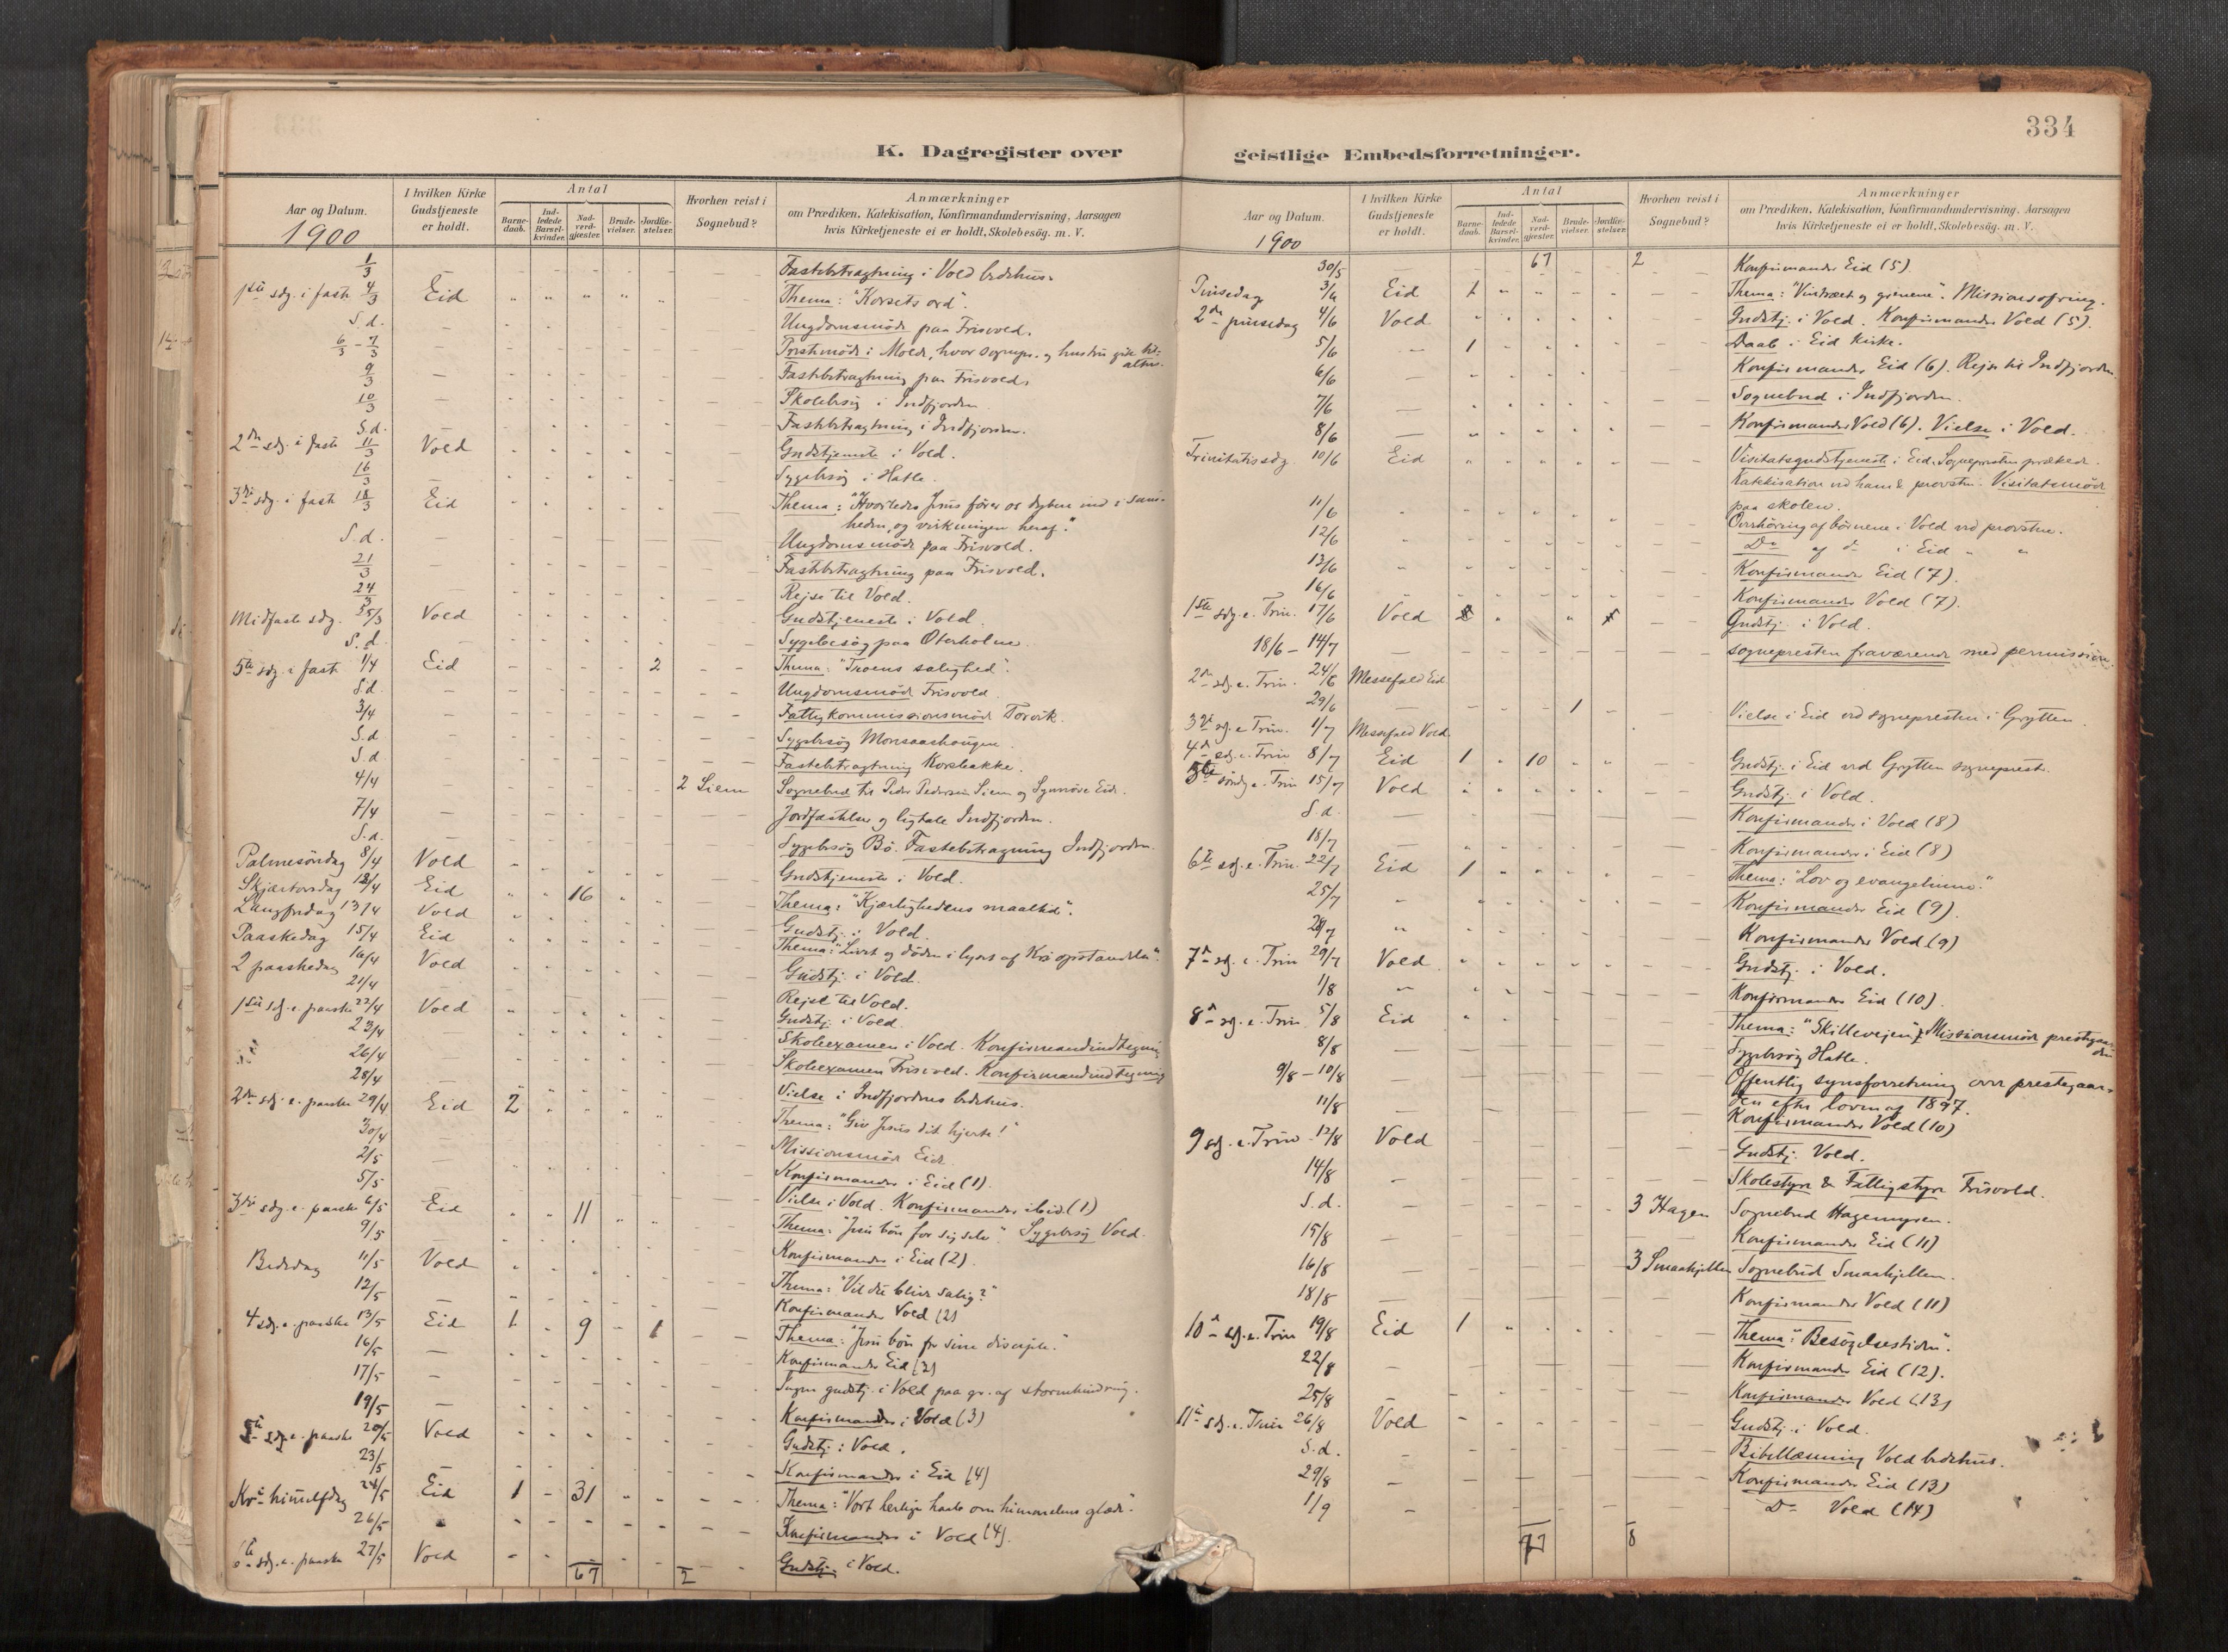 334
K. Dagregister over geistlige Embedsforretninger.
Aar og Datum. I hvilken Kirke Gudstjeneste er holdt. Antal Barnedaab. Indledede Barselkvinder. Nadverdgjæster. Brudevielser. Jordfæstelser. Hvorhen reist i Sognebud? Anmærkninger om Prædiken, Katekisation, Konfirmandundervisning, Aarsagen hvis Kirketjeneste ei er holdt, Skolebesög. m. V.
1900
1/3 Fastebetragtning i Vold bedehus.
1ste sdg. i faste 4/3 Eid Thema: "Korsets ord".
S.d. Ungdomsmöde paa Frisvold.
6/3 - 7/3 i Molde, hvor sognepr. og hustru gik til alters.
9/3 Fastebetragtning paa Frisvold.
10/3 Skolebesög i Indfjorden
S.d. Fastebetragtning i Indfjorden.
2den sdg. i faste 11/3 Vold Gudstjeneste i Vold.
16/3 Sygebesög i Hatle.
3die sdg. i faste 18/3 Eid Thema: "Hvorledes Jesus förer os dybere ind i sandheden, og virkningen heraf."
S.d. Ungdomsmöde paa Frisvold.
21/3 Fastebetragtning paa Frisvold.
24/3 Rejse til Vold.
Midfaste sdg. 25/3 Vold Gudstjeneste i Vold.
S.d. Sygebesög paa Oterholme
5te sdg. i faste 1/4 Eid 2 Thema: "Troens salighed".
S.d. Ungdomsmöde Frisvold
3/4 Fattigkommissionsmöde Torvik.
S.d. Sygebesög Monsaashougen.
S.d. Fastebetragtning Korsbakke.
4/4 2 Siem Sognebud til Peder Pedersen Siem og Synnöve Eide.
7/4 Jordfæstelse og ligtale Indfjorden.
S.d. Sygebesög Bö. Fastebetragtning Indfjorden.
Palmesöndag 8/4 Vold Gudstjeneste i Vold.
Skjærtorsdag 12/4 Eid 16 Thema: "Kjærlighedens maaltid".
Langfredag 13/4 Vold Gudstj. i Vold.
Paaskedag 15/4 Eid Thema: "Livet og döden i lyset af Krs opstandelse".
2 paaskedag 16/4 Vold Gudstj. i Vold.
21/4 Rejse til Vold.
1ste sdg. e. paaske 22/4 Vold Gudstj. i Vold
23/4 Skoleexamen i Vold. Konfirmandindtegning
26/4 Skoleexamen Frisvold. Konfirmandindtegning
28/4 Vielse i Indfjordens bedehus.
2den sdg. e. paaske 29/4 Eid 2 Thema: "Giv Jesus dit hjerte!"
30/4 Missionsmöde Eide.
2/5 Konfirmander i Eid (1).
5/5 Vielse i Vold. Konfirmander ibid. (1)
3die sdg. e. paaske 6/5 Eid 11 Thema: "Jesu bön for sig selv." Sygebesög Vold.
9/5 Konfirmander i Eid (2).
Bededag 11/5 Vold Thema: "Vil du blive salig?"
12/5 Konfirmander Vold (2)
4 sdg. e. paaske 13/5 Eid 1 9 1 Thema: "Jesu bön for sine disciple."
16/5 Konfirmander Eid (3)
17/5 Ingen gudstj. i Vold paa gr. af stormhindring.
19/5 Konfirmander i Vold (3)
5te sdg. e. paaske 20/5 Vold Gudstj. i Vold.
23/5 Konfirmander i Eid (4)
Kr. himmelfdag 24/5 Eid 1 31 Thema: "Vort herlige haab om himmelens glæde".
26/5 Konfirmander i Vold (4).
6te sdg. e. paaske 27/5 Vold Gudstj. i Vold.
67 2
Aar og Datum. I hvilken Kirke Gudstjeneste er holdt. Antal Barnedaab. Indledede Barselkvinder. Nadverdgjæster. Brudevielser. Jordfæstelser. Hvorhen reist i Sognebud? Anmærkninger om Prædiken, Katekisation, Konfirmandundervisning, Aarsagen hvis Kirketjeneste ei er holdt, Skolebesög. m. V.
1900
30/5 67 2 Konfirmander Eid (5).
Pinsedag 3/6 Eid 1 Thema: "Vintræet og grenene". Missionsofring.
2den pinsedag 4/6 Vold Gudstj. i Vold. Konfirmander Vold (5).
5/6 1 Daab i Eid kirke.
6/6 Konfirmander Eid (6). Rejse til Indfjorden.
7/6 Sognebud i Indfjorden.
8/6 Konfirmander Vold (6). Vielse i Vold.
Trinitatissdg 10/6 Eid Visitatsgudstjeneste i Eid. Sognepresten prækede. Katekisation ved ham & provsten. Visitatsmöde paa skolen.
11/6 Overhöring af börnene i Vold ved provsten.
12/6 Do af do i Eid " "
13/6 Konfirmander Eid (7).
16/6 Konfirmander Vold (7).
1ste sdg. e. Trin. 17/6 Vold Gudstj. i Vold.
18/6 - 14/7 sognepresten fraværende med permission.
2den sdg. e. Trin. 24/6 Messefald Eid.
29/6 1 Vielse i Eid ved sognepresten i Grytten.
3die sdg. e. Trin. 1/7 Messefald Vold.
4de sdg. e. Trin 8/7 Eid 1 10 Gudstj. i Eid ved Grytten sogneprest.
5te söndg. e. Trin 15/7 Vold Gudstj. i Vold.
S.d. Konfirmander i Vold (8)
18/7 Konfirmander i Eid (8)
6te sdg. e. Trin. 22/7 Eid 1 Thema: "Lov og evangelium."
25/7 Konfirmander Eid (9).
28/7 Konfirmander Vold (9)
7de sdg. e. Trin 29/7 Vold Gudstj. i Vold.
1/8 Konfirmander Eid (10).
8de sdg. e. Trin. 5/8 Eid Thema: "Skillevejen". Missionsmöde prestegaarden
8/8 Sygebesög Hatle.
9/8 - 10/8 Offentlig synsforretning over prestegaarden efter loven af 1897.
11/8 Konfirmander Vold (10)
9 sdg. e. Trin. 12/8 Vold Gudstj. Vold.
14/8 Skolestyre & Fattigstyre Frisvold.
S.d. 3 Hagen Sognebud Hagemyren.
15/8 Konfirmander Eid (11)
16/8 3 Smaahjellen Sognebud Smaahjellen.
18/8 Konfirmander Vold (11)
10de sdg. e. Trin 19/8 Eid 1 Thema: "Besögelsestiden".
22/8 Konfirmander Eid (12).
25/8 Konfirmander Vold (13)
11te sdg. e. Trin 26/8 Vold Gudstj. i Vold.
S.d. Bibellæsning Vold bedehus.
29/8 Konfirmander Eid (13)
1/9 Do Vold (14)
77 8